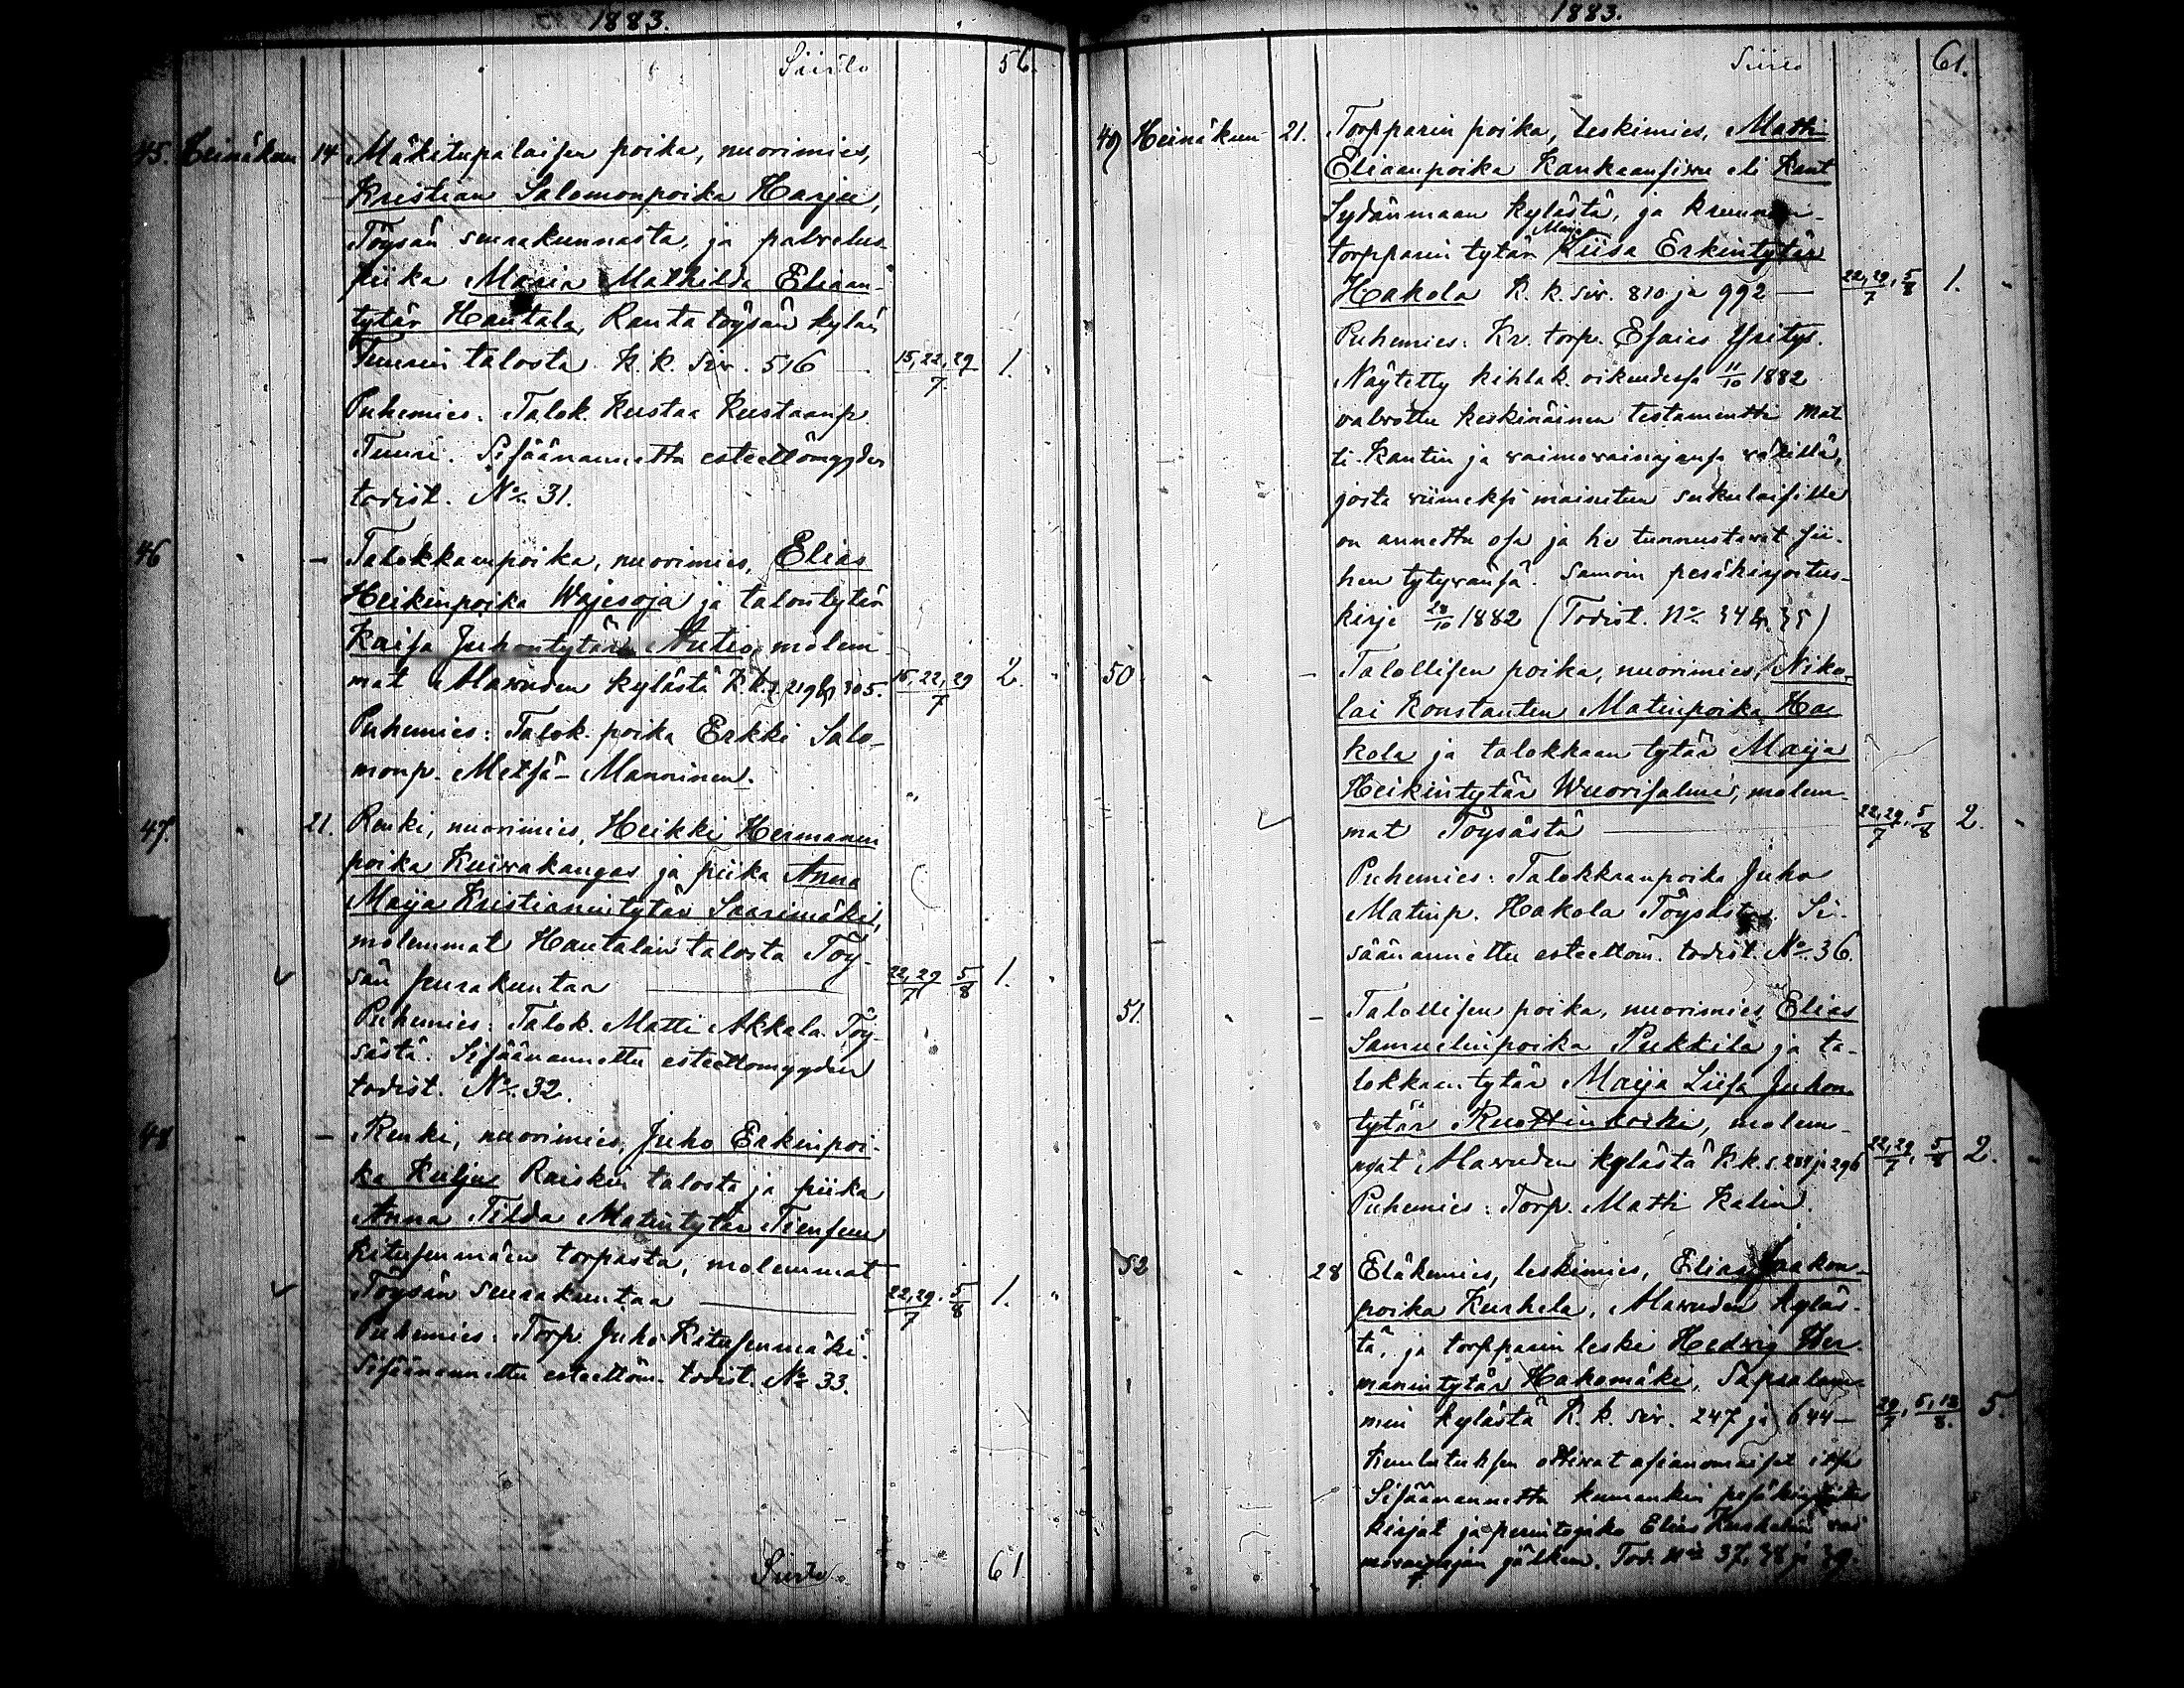 1883.
Siirto 56.
45. Heinäkuu 14 Mäkitupalaisen poika, nuorimies,
Kristian Salomonpoika Harju,
Töysän seurakunnasta, ja palvelus-
piika Maria Mathilda Eliaan-
tytär Hautala, Rantatöysän kylän
Tuurin talosta K. k. siv. 516 — 15, 22, 29/7 1.
Puhemies: Talok. Kustaa Kustaanp.
Tuuri. Sisäänannettu esteettömyyden
todist. No. 31.
46 " — Talokkaanpoika, nuorimies, Elias
Heikinpoika Wajesoja ja talontytär
Kaisa Juhontytär Autio, molem-
mat Alawuden kylästä K.k. s. 219 & 305. 15, 22, 29/7 2. "
Puhemies: Talok. poika Erkki Salo-
monp. Metsä-Manninen.
47. " 21. Renki, nuorimies, Heikki Hermannin
poika Kuiwakangas ja piika Anna
Maija Kristianintytär Saarimäki,
molemmat Hautalan talosta Töy-
sän seurakuntaa — 22, 29/7 5/8 1. "
Puhemies: Talok. Matti Akkala Töy-
sästä. Sisäänannettu esteettömyyden
todist. No. 32.
48 " — Renki, nuorimies, Juho Erkinpoi-
ka Kulju Raiskin talosta ja piika
Anna Tilda Matintytär Tiensuu
Kitusenmäen torpasta, molemmat
Töysän seurakuntaa — 22, 29/7. 5/8 1. "
Puhemies: Torp. Juho Kitusenmäki.
Sisäänannettu esteettöm. todist. No 33.
Siirto 61
1883.
Siirto 61.
49 Heinäkuu 21. Torpparin poika, leskimies, Matti
Eliaanpoika Kankaansivu eli Kant
Sydänmaan kylästä, ja kruunun-
torpparin tytär Maija Liisa Erkintytär
Hakola K. k. siv. 810 ja 992 — 22, 29/7, 5/8 1. "
Puhemies: Kr. torp. Esaias Yritys.
Näytetty kihlak. oikeudessa 11/10 1882
valvottu keskinäinen testamentti Mat-
ti Kantin ja vaimovainajansa väkillä,
josta viimeksi mainitun sukulaisille
on annettu osa ja he tunnustavat sii-
hen tytyvänsä. Samoin pesäkirjoitus-
kirja 28/10 1882 (Todist. No. 34 & 35)
50 " — Talollisen poika, nuorimies, Niko-
lai Konstantin Matinpoika Ha-
kola ja talokkaan tytär Maija
Heikintytär Wuorisalmi, molem-
mat Töysästä — 22, 29/7, 5/8 2. "
Puhemies: Talokkaanpoika Juho
Matinp. Hakola Töysästä. Si-
säänannettu esteettöm. todist. No. 36.
51. " — Talollisen poika, nuorimies, Elias
Samuelinpoika Pukkila ja ta-
lokkaan tytär Maija Liisa Juhon-
tytär Ruottinkoski, molem-
mat Alawuden kylästä K.k. s. 281 ja 296 22, 29/7, 5/8 2. "
Puhemies: Torp. Matti Kalin.
52 " 28 Eläkemies, leskimies, Elias Jaakon-
poika Kuhela, Alawuden kyläs-
tä, ja torpparin leski Hedvig Her-
manintytär Hakomäki, Sapsalam-
min kylästä K. k. siv. 247 ja 644 — 29/7, 5, 12/8. 5.
Kuulutuksen ottivat asianomaiset itse
Sisäänannettu kumankin
kirjat ja Elias
jälkeen. Tod. No 37, 38 ja 39.